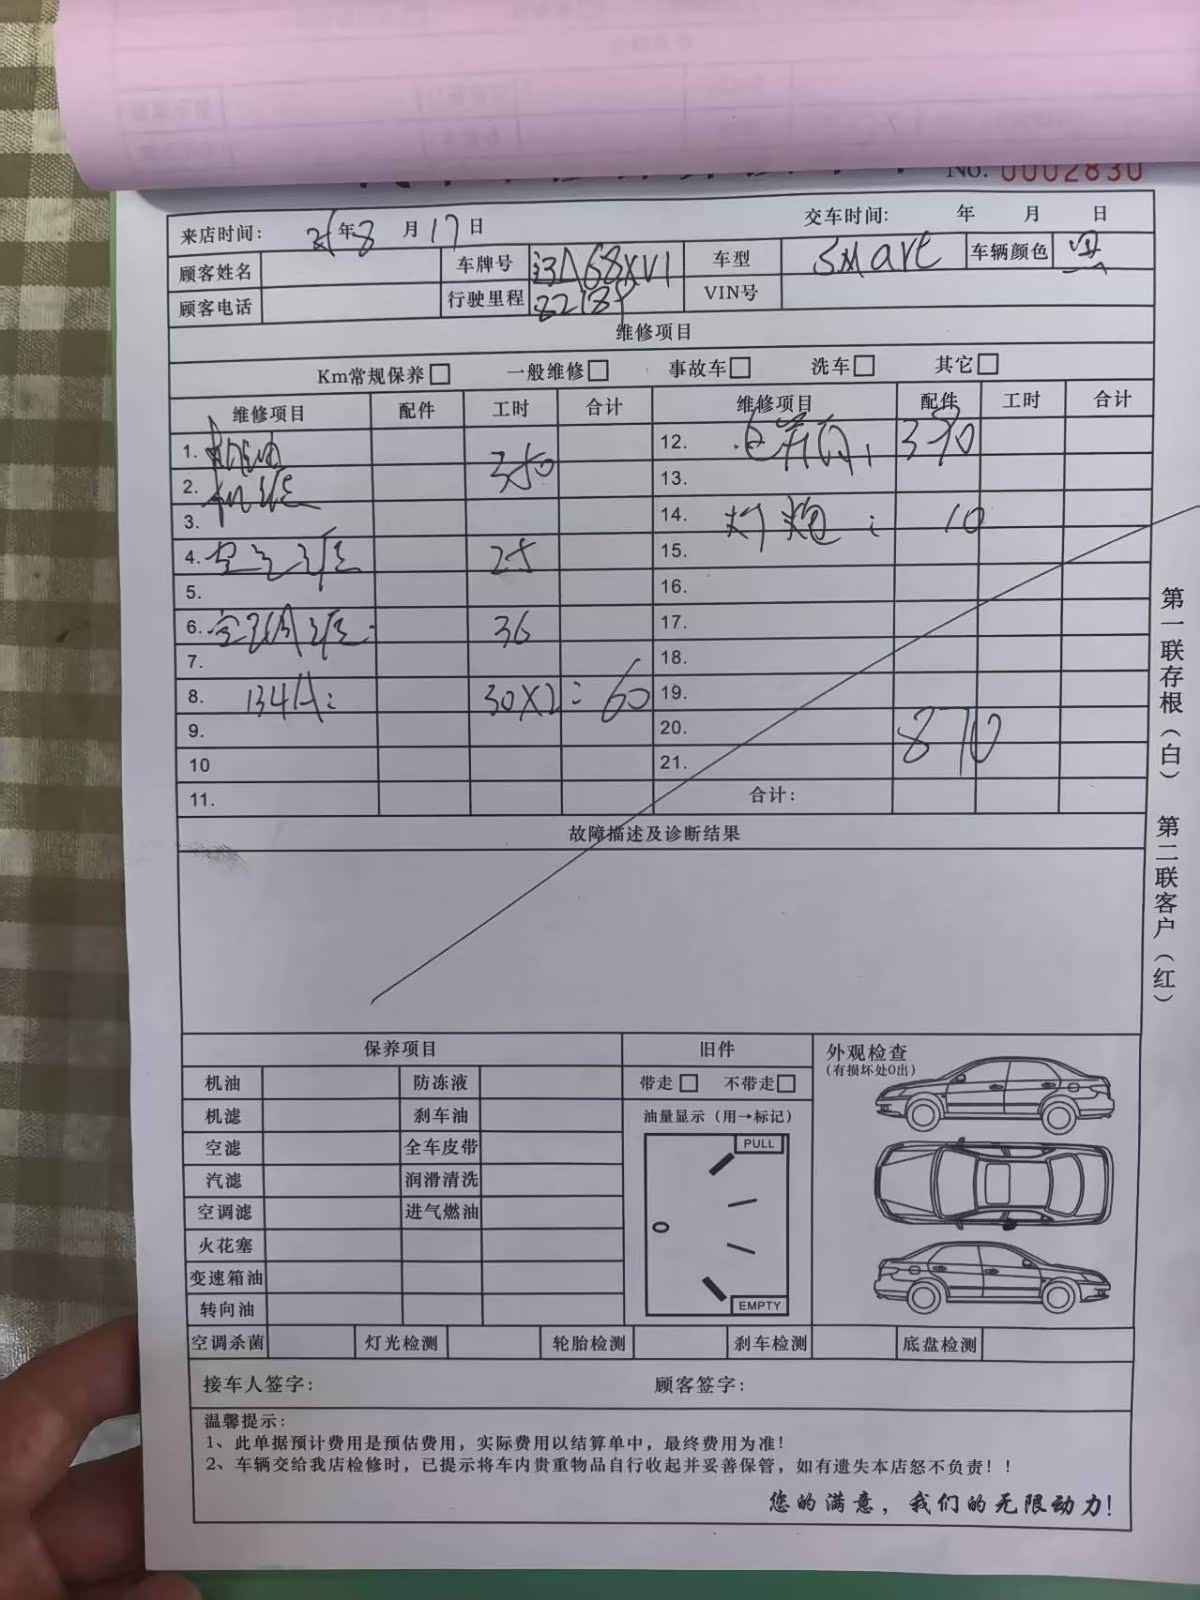 No. 0002830
来店时间: 年8月17日 交车时间: 年 月 日
顾客姓名 车牌号 A68XV1 车型 smart 车辆颜色
顾客电话 行驶里程 VIN号
维修项目
Km常规保养□ 一般维修□ 事故车□ 洗车□ 其它□
维修项目 配件 工时 合计 维修项目 配件 工时 合计
1. 机油 350 12. 370
2. 机滤 13.
3. 14. 灯炮: 10
4. 空气滤 25 15.
5. 16.
6. 空调滤 36 17.
7. 18.
8. 134A: 30X2=60 19.
9. 20. 870
10 21.
11. 合计:
故障描述及诊断结果
保养项目 旧件 外观检查
(有损坏处0出)
机油 防冻液 带走□ 不带走□
机滤 刹车油 油量显示（用→标记）
空滤 全车皮带 PULL
汽滤 润滑清洗
空调滤 进气燃油
火花塞
变速箱油
转向油 EMPTY
空调杀菌 灯光检测 轮胎检测 刹车检测 底盘检测
接车人签字: 顾客签字:
温馨提示:
1、此单据预计费用是预估费用，实际费用以结算单中，最终费用为准！
2、车辆交给我店检修时，已提示将车内贵重物品自行收起并妥善保管，如有遗失本店怒不负责！！
您的满意，我们的无限动力!
第一联存根（白） 第二联客户（红）